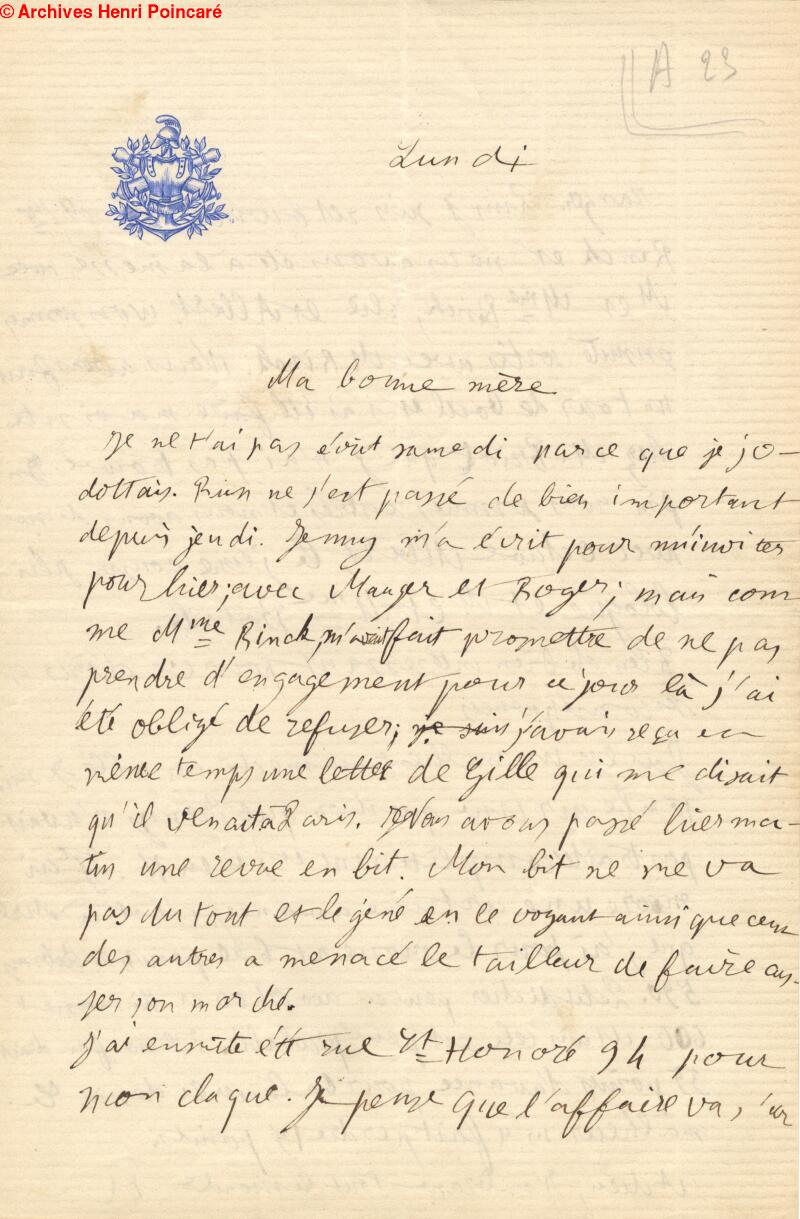 © Archives Henri Poincaré
A 23
Lundi
Ma bonne mère
Je ne t'ai pas écrit samedi parce que je jo-
dottais. Rien ne s'est passé de bien important
depuis jeudi. Jenny m'a écrit pour m'inviter
pour hier, avec Mauger et Roger; mais com
me Mme Rinck m'avait fait promettre de ne pas
prendre d'engagement pour ce jour là j'ai
été obligé de refuser; je suis j'avais reçu en
même temps une lettre de Gille qui me disait
qu'il venait à Paris. Nous avons passé hier ma-
tin une revue en bit. Mon bit ne me va
pas du tout et le géné en le voyant ainsi que ceux
des autres a menacé le tailleur de faire cas-
ser son marché.
J'ai ensuite été rue St Honoré 94 pour
mon claque. Je pense que l'affaire va s'ar